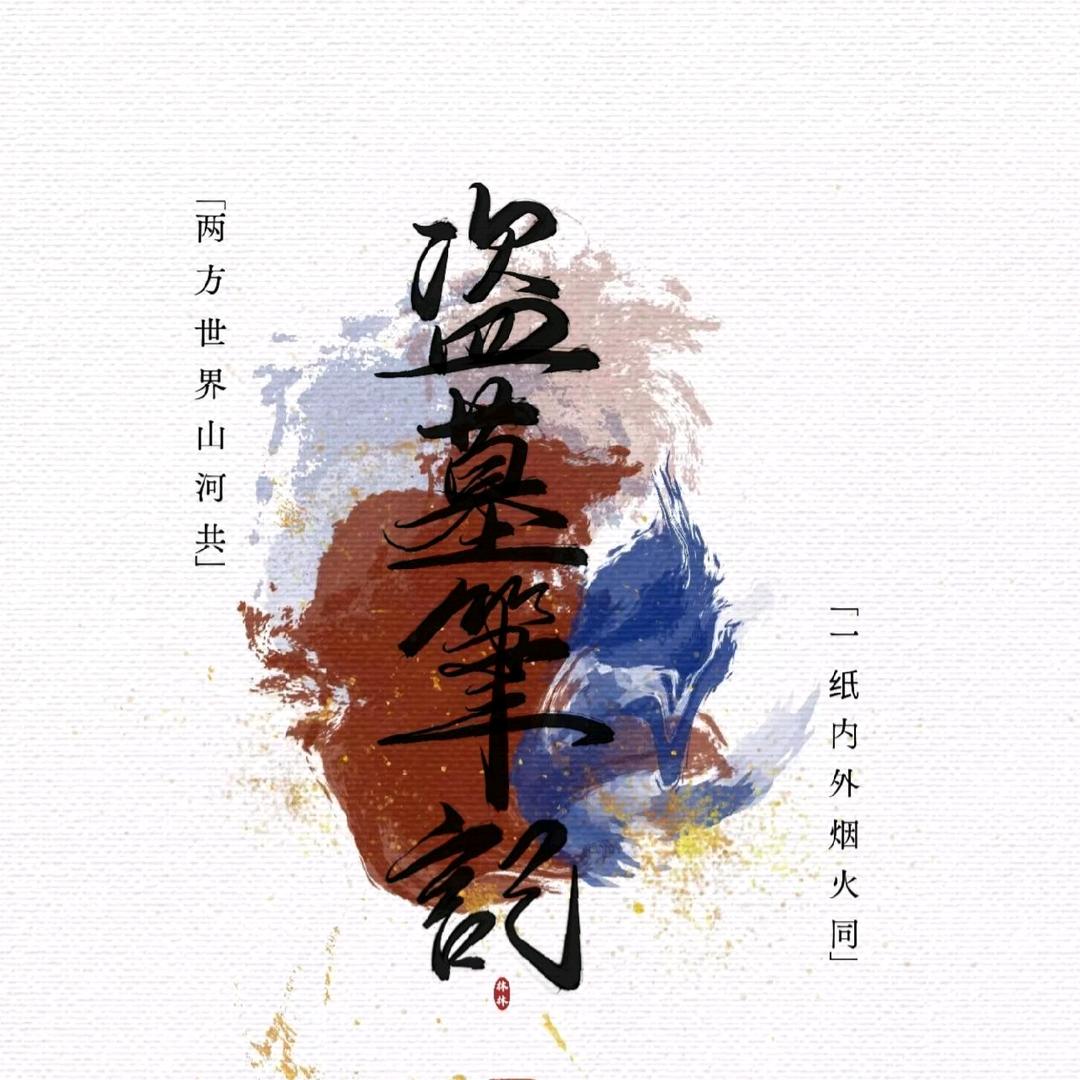 「两方世界山河共」
盗墓筆記
「一纸内外烟火同」
林林